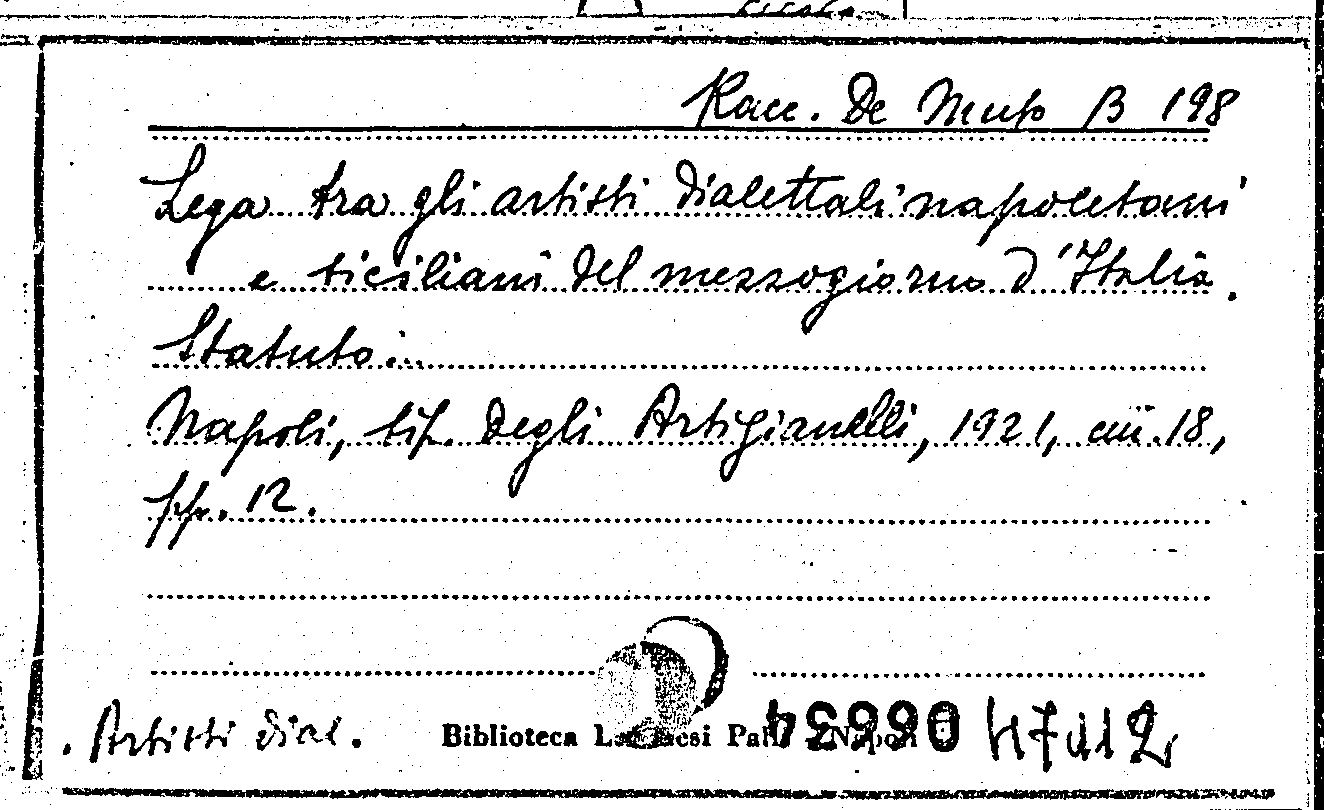 Racc. De Muro B 198
Lega tra gli artisti dialettali napoletani
e siciliani del mezzogiorno d'Italia.
Statuto...
Napoli, tip. degli Artigianelli, 1921, cm. 18,
pp. 12.
Artisti dial.
Biblioteca Napoli